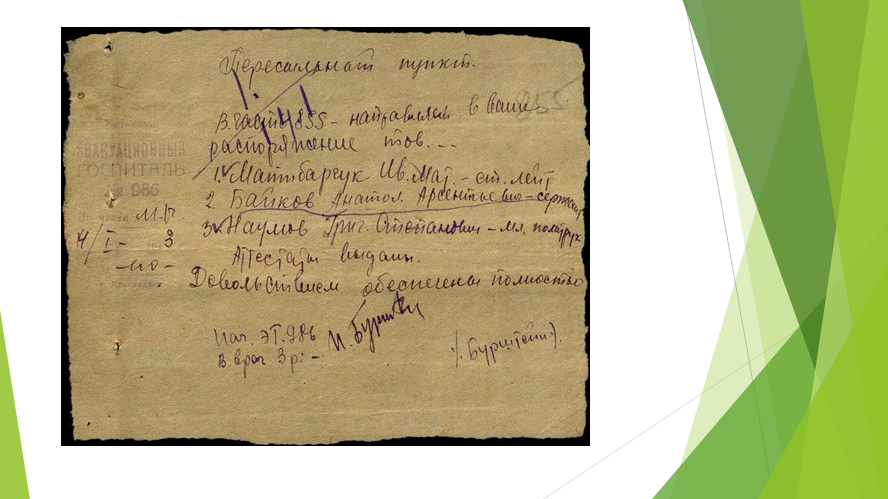 Пересыльный пункт.
В. части 855 – направляем в ваше
распоряжение тов...
1. Ив. Мат. – ст. лейт
2. Байков Анатол. Арсентьевич – сержант
3. Наумов Григ. Степанович – мл. политрук
Аттестаты выданы.
Довольствием обеспечены полностью
Нач. ЭГ. 986
В. врач 3 р. –
/. Бурштейн /.
855
ЭВАКУАЦИОННЫЙ
ГОСПИТАЛЬ
№ 986
По части
4/I – 3